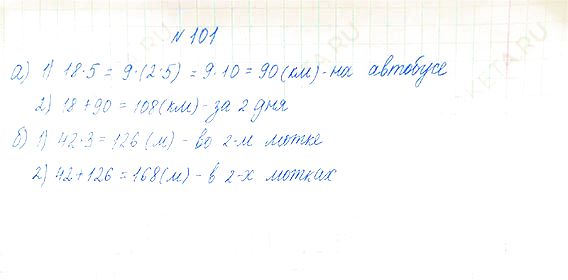 № 101
а) 1) 18·5 = 9·(2·5) = 9·10 = 90 (км) - на автобусе
2) 18 + 90 = 108 (км) - за 2 дня
б) 1) 42·3 = 126 (м) - во 2-м мотке
2) 42 + 126 = 168 (м) - в 2-х мотках